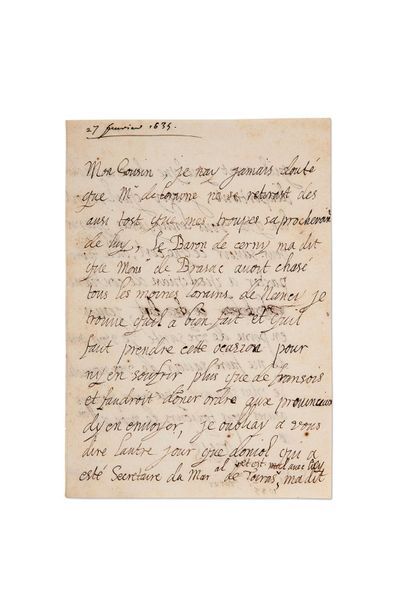 27 fevrier 1635.
Mon Cousin je nay jamais douté
que Mr de loraine ne se retirast des
ausi tost que mes troupes saprocheroient
de luy, le Baron de cerny ma dit
que Monsr de Brasac avoit chasé
tous les moines lorains de Nanci je
trouve quil a bien fait et quil
faut prendre cette ocasion pour
ny en soufrir plus que de fransois
et faudroit doner ordre aux provinciaux
dy en envoyer, je oubliay a vous
dire lautre jour que doniol qui a
esté Secretaire du Maral de Toiras, et est mal avec luy ma dit